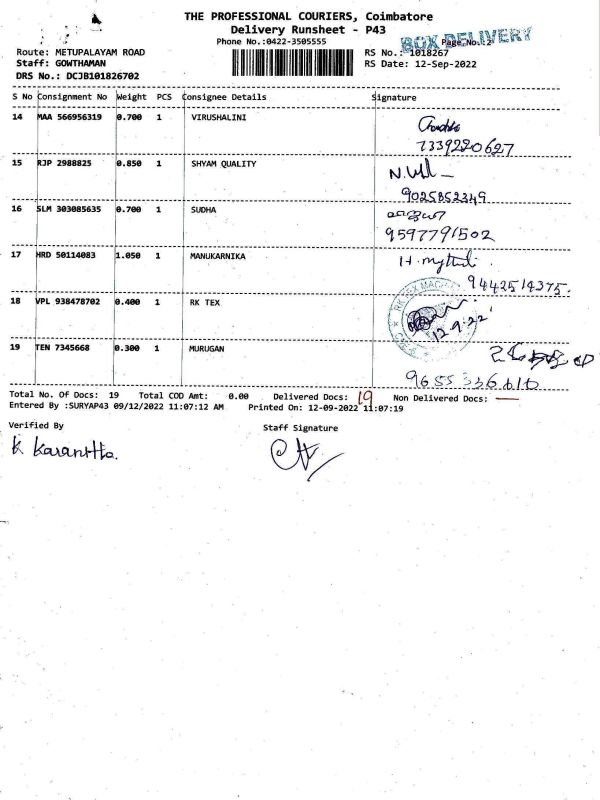 THE PROFESSIONAL COURIERS, Coimbatore
Delivery Runsheet - P43
Phone No.:0422-3505555
BOX DELIVERY
Page No.:2
Route: METUPALAYAM ROAD
RS No.: 1018267
Staff: GOWTHAMAN
RS Date: 12-Sep-2022
DRS No.: DCJB101826702
S No Consignment No Weight PCS Consignee Details Signature
14 MAA 566956319 0.700 1 VIRUSHALINI
7339220627
15 RJP 2988825 0.850 1 SHYAM QUALITY
9025852349
16 SLM 303085635 0.700 1 SUDHA
9597791502
17 HRD 50114083 1.050 1 MANUKARNIKA
9442514375
18 VPL 938478702 0.400 1 RK TEX
12.9.22
19 TEN 7345668 0.300 1 MURUGAN
Total No. Of Docs: 19 Total COD Amt: 0.00 Delivered Docs: 19 Non Delivered Docs: —
Entered By :SURYAP43 09/12/2022 11:07:12 AM Printed On: 12-09-2022 11:07:19
Verified By Staff Signature